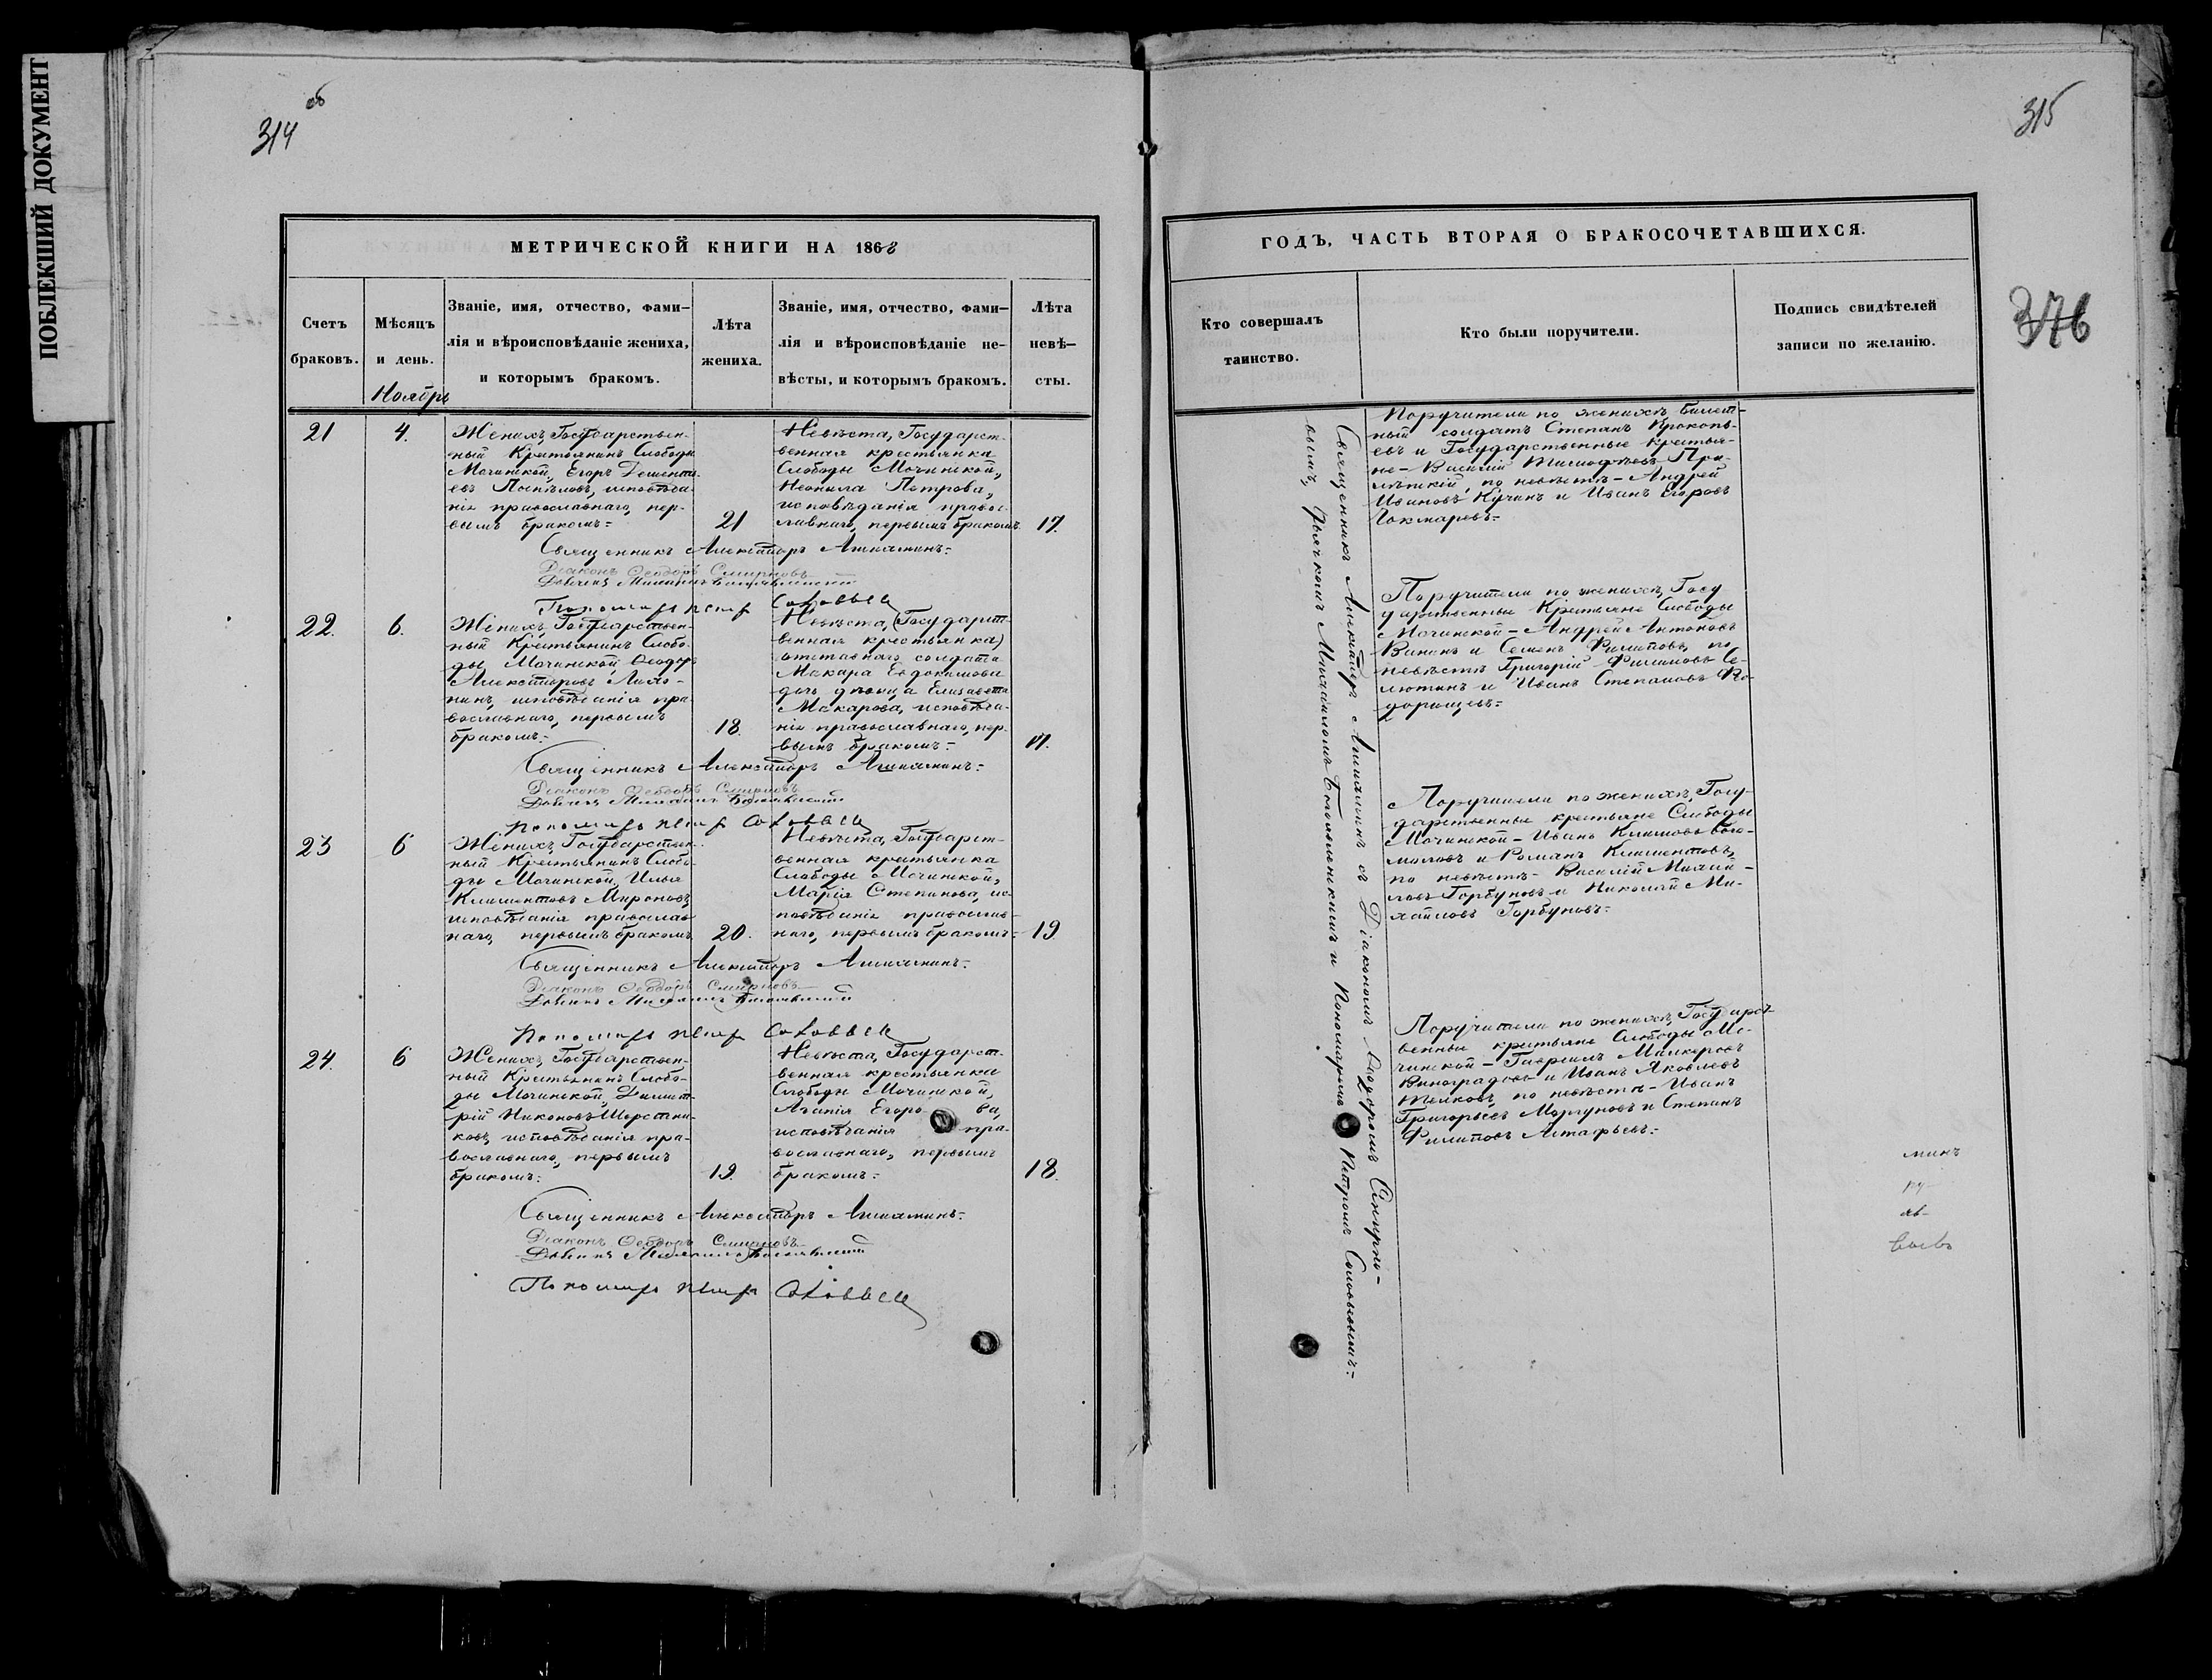 ПОБЛЕКШИЙ ДОКУМЕНТ
314 об
МЕТРИЧЕСКОЙ КНИГИ НА 1868
Счетъ браковъ.
Мѣсяцъ и день.
Званіе, имя, отчество, фами-
лія и вѣроисповѣданіе жениха,
и которымъ бракомъ.
Лѣта
жениха.
Званіе, имя, отчество, фами-
лія и вѣроисповѣданіе не-
вѣсты, и которымъ бракомъ.
Лѣта
невѣ-
сты.
Ноябрь
21
4.
Женихъ, Государствен-
ный Крестьянинъ Слободы
Мочинской, Егоръ Демент
евъ исповѣда-
нія православнаго, пер-
вымъ бракомъ=
21
Невѣста, Государст-
венная крестьянка
Слободы Мочинской,
Неонила Петрова,
исповѣданія правос-
лавнаго, первымъ бракомъ
17.
Священникъ Александръ
Діаконъ Ѳеодоръ Смирновъ
Пономарь Петръ Соловьевъ
22.
6.
Женихъ, Государствен-
ный Крестьянинъ Слобо-
ды Мочинской Ѳеодоръ
Александровъ
исповѣданія пра-
вославнаго, первымъ
бракомъ.
18.
Невѣста, (Государст-
венная крестьянка)
отставнаго солдата
Макара Евдокимова
дочь дѣвица Елисавета
Макарова, исповѣда-
нія православнаго, пер-
вымъ бракомъ=
17.
Священникъ Александръ
Діаконъ Ѳеодоръ Смирновъ
Пономарь Петръ Соловьевъ
23
6
Женихъ, Государствен-
ный Крестьянинъ Слобо-
ды Мочинской, Илья
Климентовъ Мироновъ,
исповѣданія православ-
наго, первымъ бракомъ
20.
Невѣста, Государст-
венная крестьянка
Слободы Мочинской,
Марія Степанова, ис-
повѣданія православ-
наго, первымъ бракомъ=
19
Священникъ Александръ
Діаконъ Ѳеодоръ Смирновъ
Пономарь Петръ Соловьевъ
24.
6
Женихъ, Государствен-
ный Крестьянинъ Слобо-
ды Мочинской, Димит-
рій Никоновъ Шерстни-
ковъ, исповѣданія пра-
вославнаго, первымъ
бракомъ=
19.
Невѣста, Государст-
венная крестьянка
Слободы Мочинской,
Агапія Егоро ва,
исповѣданія пра-
вославнаго, первымъ
бракомъ=
18.
Священникъ Александръ
Діаконъ Ѳеодоръ Смирновъ
Пономарь Петръ Соловьевъ
315
376
ГОДЪ, ЧАСТЬ ВТОРАЯ О БРАКОСОЧЕТАВШИХСЯ.
Кто совершалъ
таинство.
Кто были поручители.
Подпись свидѣтелей
записи по желанію.
Священникъ Александръ съ Діакономъ Ѳеодоромъ Смирно-
вымъ, Дьячкомъ Михаиломъ Богоявленскимъ и Пономаремъ Петромъ Соловьевымъ=
Поручители по женихѣ билет-
ный солдатъ Степанъ Прокопь-
евъ и Государственные крестья-
не - Василій Тимофѣевъ
по невѣстѣ - Андрей
Ивановъ Кучинъ и Иванъ Егоровъ
Токмаревъ=
Поручители по женихѣ, Госу
дарственные Крестьяне Слободы
Мочинской - Андрей Антоновъ
Ванинъ и Семенъ Филиповъ, по
невѣстѣ Григорій Филиповъ Се-
лютинъ и Иванъ Степановъ
Поручители по женихѣ, Госу-
дарственные крестьяне Слободы
Мочинской - Иванъ Климовъ Бого-
моловъ и Романъ Климентовъ,
по невѣстѣ - Василій Михай-
ловъ Горбуновъ и Николай Ми-
хайловъ Горбуновъ=
Поручители по женихѣ, Государст-
венные крестьяне Слободы Мо-
чинской - Гавріилъ
Виноградовъ и Иванъ Яковлевъ
по невѣстѣ - Иванъ
Григорьевъ Моргуновъ и Степанъ
Филиповъ Астафьевъ=